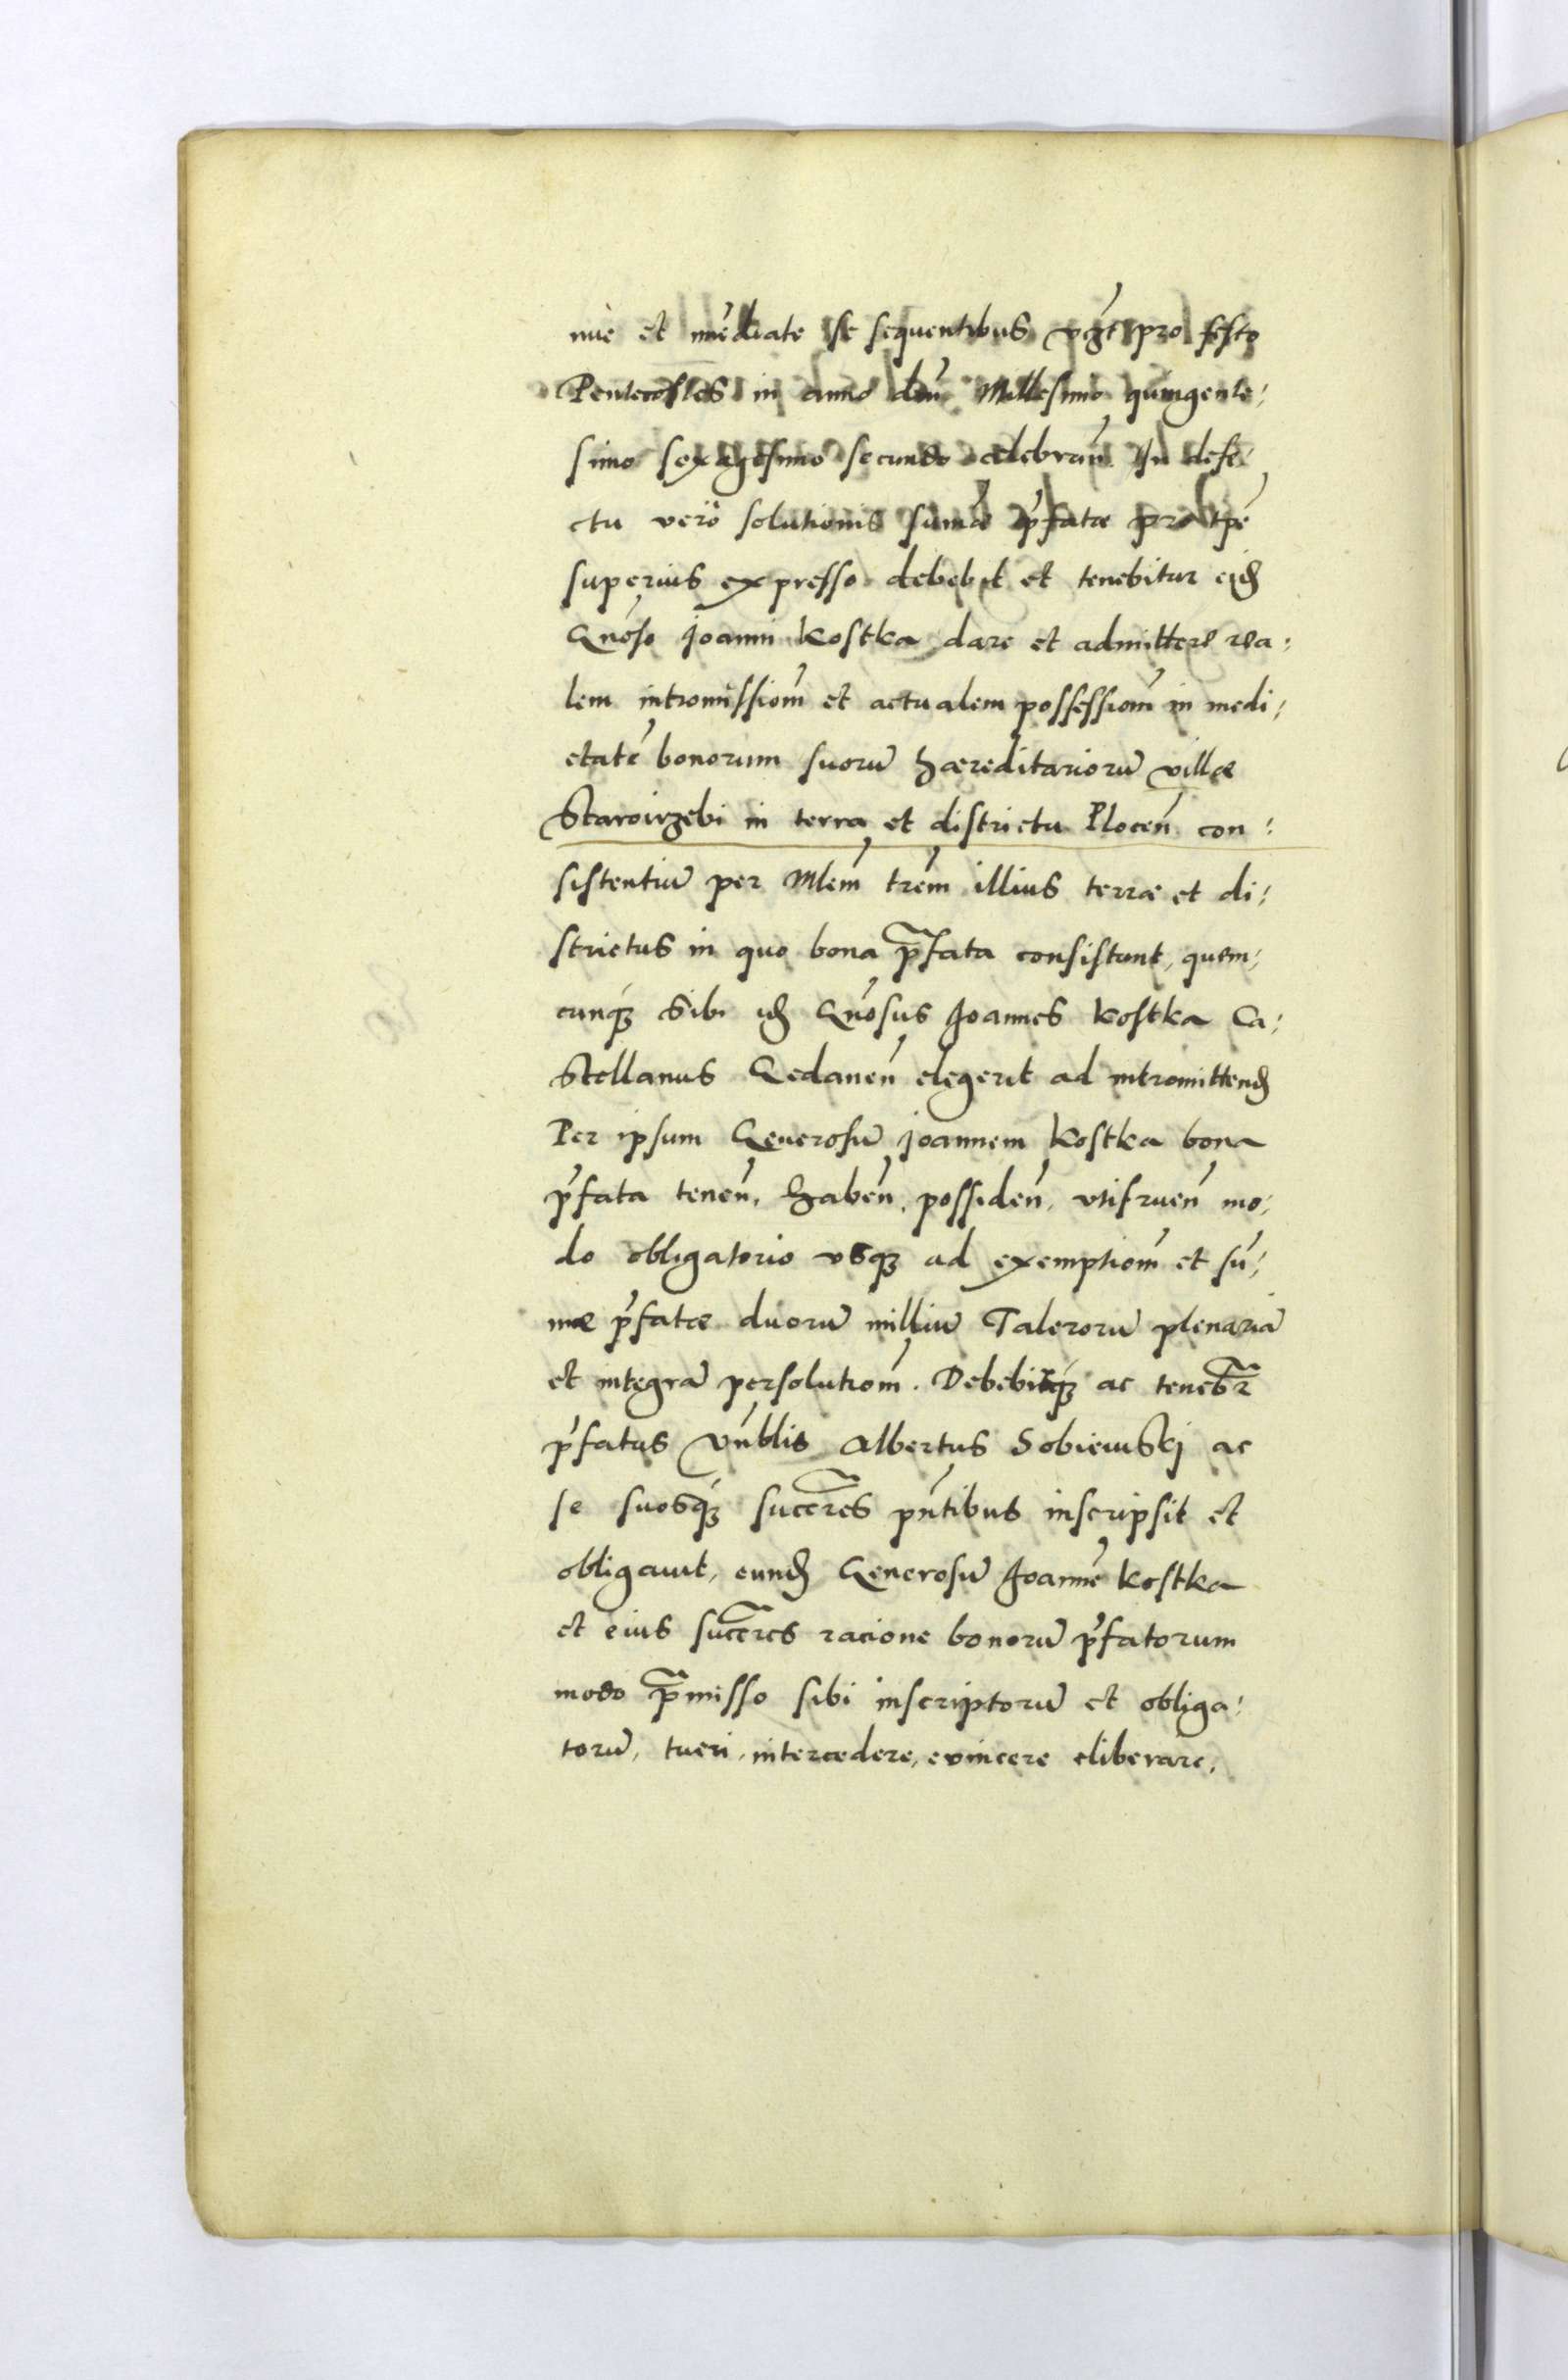 nuè et im̃ediate se sequentibus vizt pro festo
Pentecostes in anno dñi Millesimo quingente:
simo sexagesimo secundo celebrañ. In defe:
ctu verò solutionis sum̃æ p̃fatæ pro tp̃e
superius expresso debebit et tenebitur eid
Gnõso Joanni Kostka dare et admittere rea:
lem intromissiom̃ et actualem possessiom̃ in medi:
etatẽ bonorum suorũ hæreditariorũ villæ
Staroirzebi in terra et districtu Plocen̄ con:
sistentiũ per Mlem̃ trẽm illius terræ et di:
strictus in quo bona p̃fata consistunt, quem:
cunq́ꝫ sibi id Gnõsus Joannes Kostka Ca:
stellanus Gedanen̄ elegerit ad intromittend
Per ipsum Generosũ Joannem Kostka bona
p̃fata tenen̄, haben̄, possiden̄, vtifruen̄ mo:
do obligatorio vsqꝫ ad exemptiom̃ et sũ:
mæ p̃fatæ duorũ milliũ Talerorũ plenariã
et integrã persolutiom̃. Debebitq́ꝫ ac tenebr̃
p̃fatus Vn̄blis Albertus Sobieiuskj ac
se suosq́ꝫ succr̃es pñtibus inscripsit et
obligauit, eund Generosũ Joannẽ Kostka
et eius succr̃es racione bonorũ p̃fatorum
modo p̃misso sibi inscriptorũ et obliga:
torũ, tueri, intercedere, euincere eliberare,